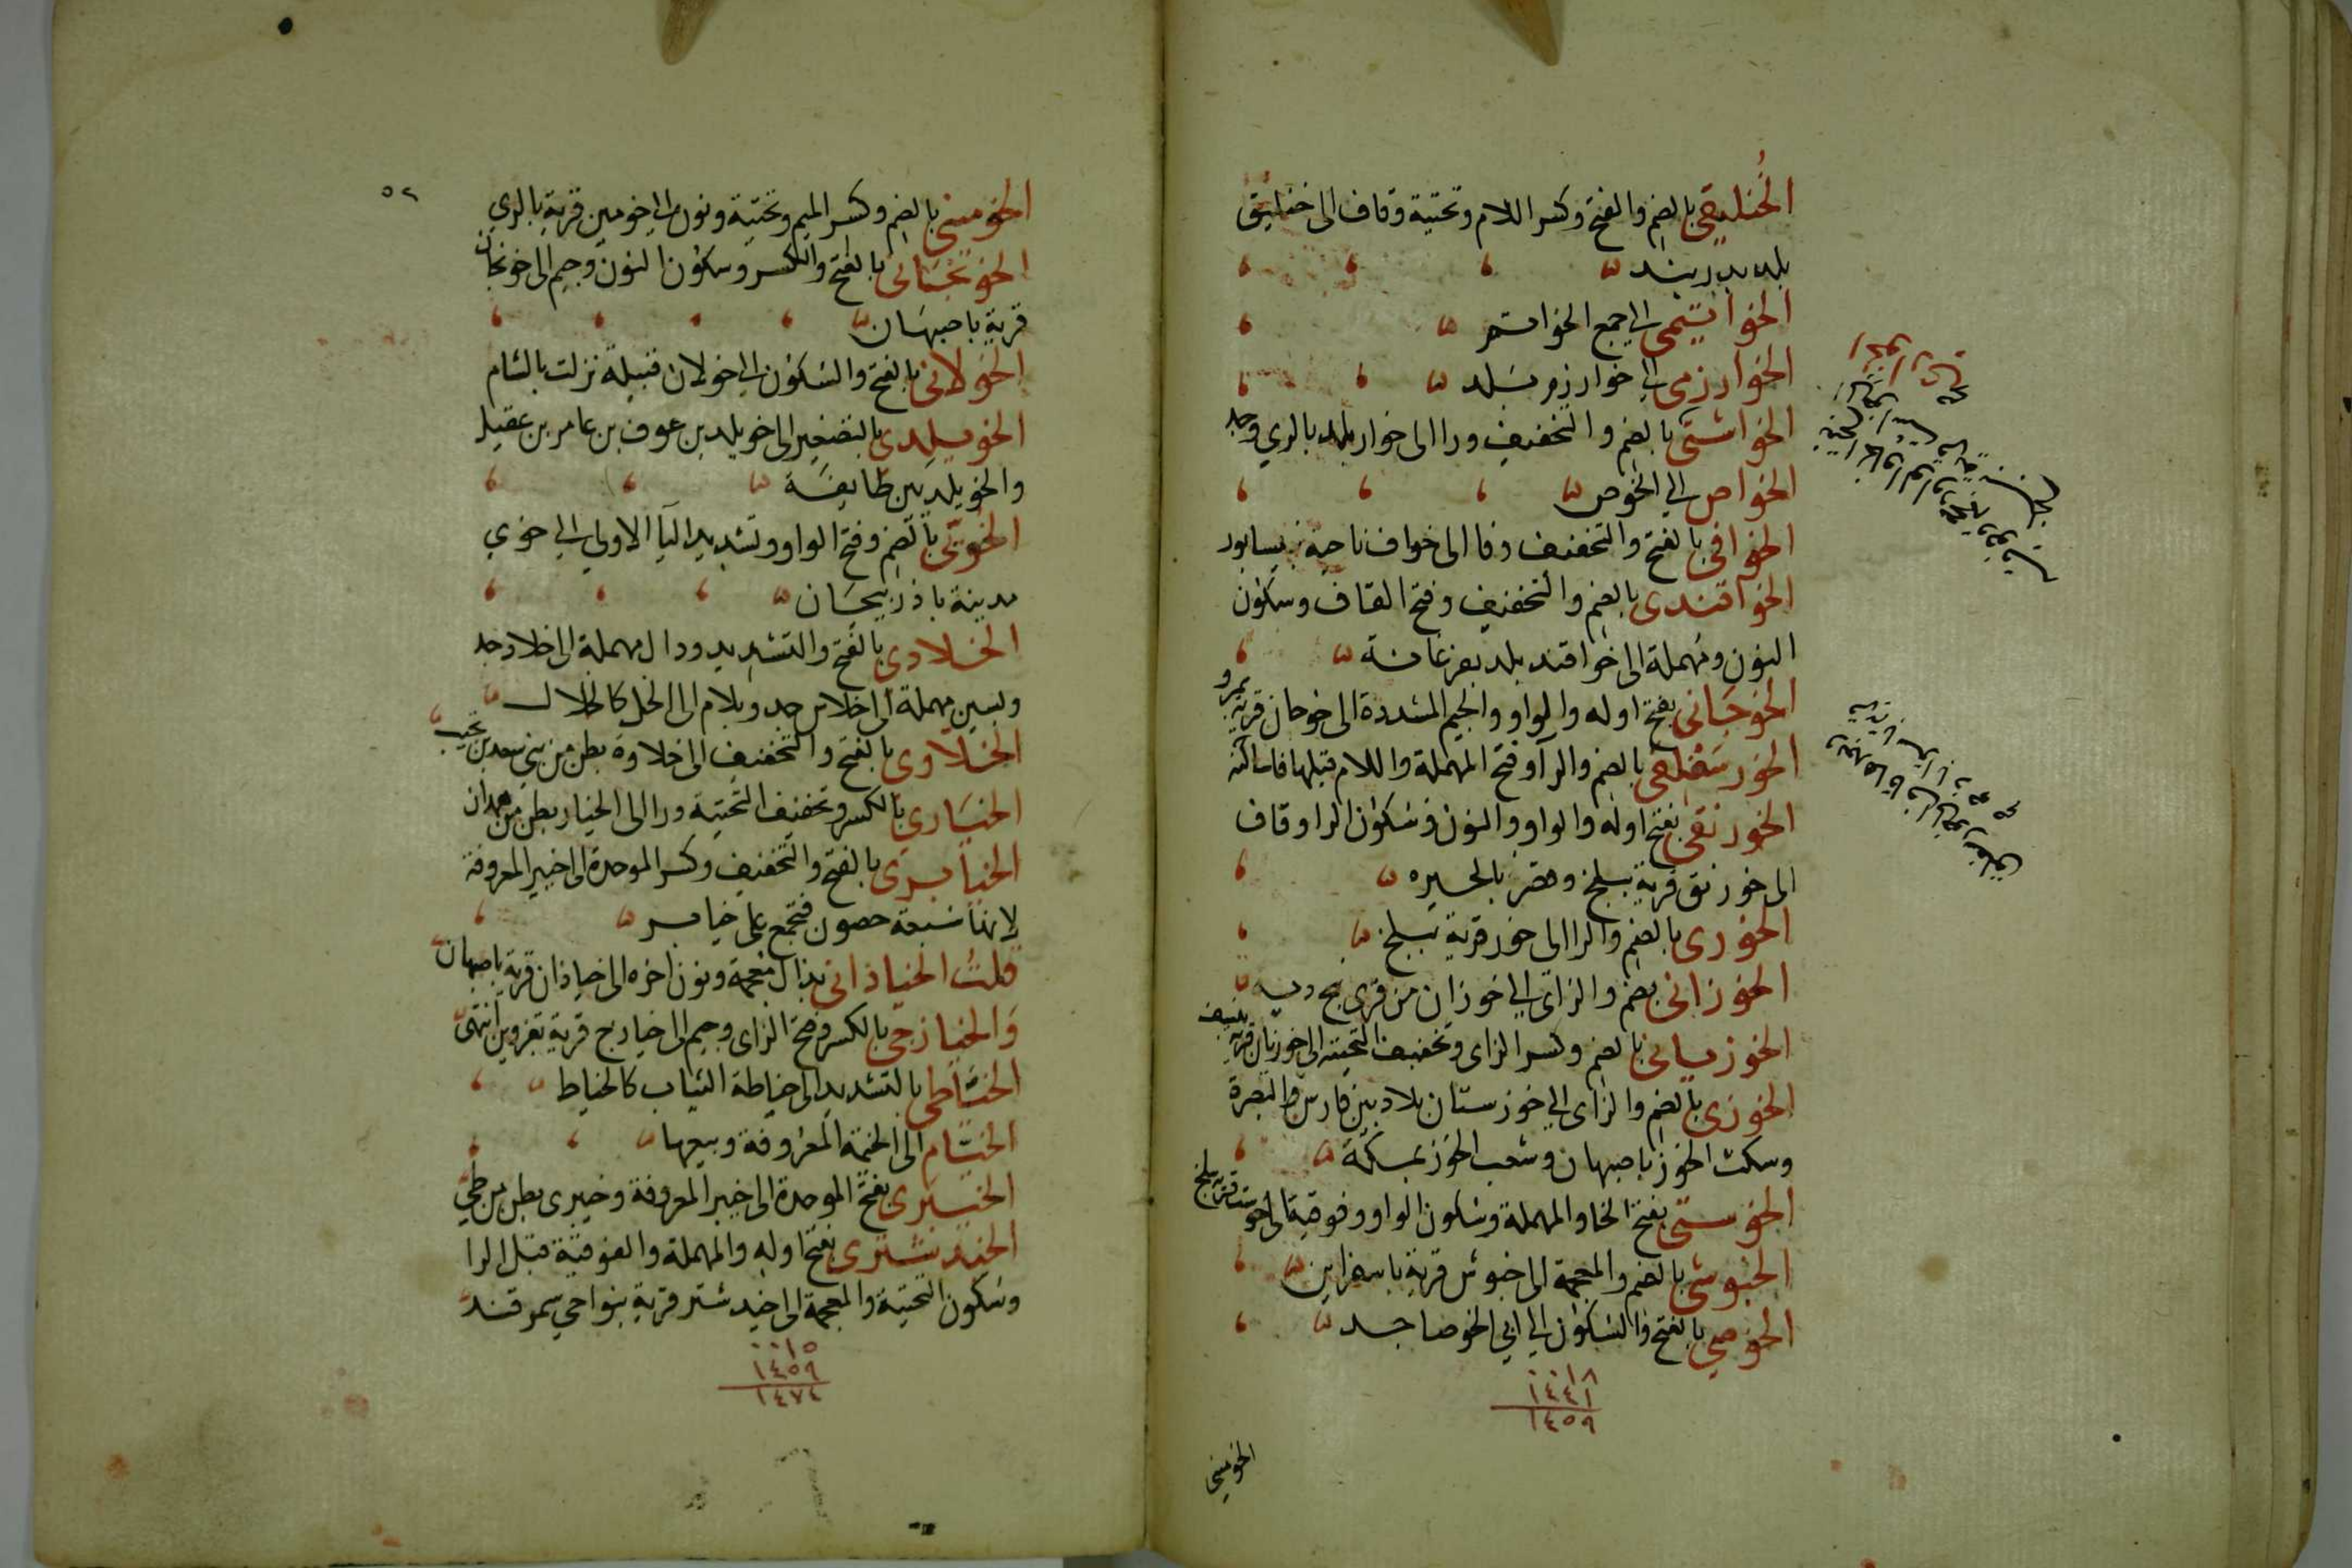 الخنليقي بالضم والفتح وكسر اللام وتحتية وقاف الى خنليق
بلد بدربند
الخواتيمي الى جمع الخواتم
الخوارزمي الى خوارزم بلد
بالضم والتخفيف ورا الى خوار بلد بالري وجد
الخواص الى الخوص
الخوافي بالفتح والتخفيف وفا الى خواف ناحية بنيسابور
الخواقندي بالضم والتخفيف وفتح القاف وسكون
النون ومهملة الى خواقند بلد بفرغانة
الخوجاني بفتح اوله والواو والجيم المشددة الى خوجان قرية بمرو
الخورسفلقي بالضم والرا وفتح المهملة واللام قبلها فا ساكنة
الخورنقي بفتح اوله والواو والنون وسكون الرا وقاف
الى خورنق قرية ببلخ وقصر بالحيره
الخوري بالضم والرا الى خور قرية ببلخ
الخوزاني بضم والزاي الى خوزان من قرى بنج ديه
الخوزياني بالضم وكسر الزاي وتخفيف التحتية الى خوزيان قرية بنسف
الخوزي بالضم والزاي الى خوزستان بلاد بين فارس والبصرة
وسكت الخوز باصبهان وشعب الخوز بمكة
الخوستي بفتح الخا والمهملة وسكون الواو وفوقية الى خوست قرية ببلخ
الخبوشي بالضم والمعجمة الى خبوش قرية باسفراين
الخوصي بالفتح والسكون الى ابي الخوصا جد
٠٠١٨
١٤٤١
١٤٥٩
الخوميني
٥٢
الخوميني بالضم وكسر الميم وتحتية ونون الى خومين قرية بالري
الخونجاني بالفتح والكسر وسكون النون وجيم الى خونجان
قرية باصبهان
الخولاني بالفتح والسكون الى خولان قبيلة نزلت بالشام
الخويلدي بالتصغير الى خويلد بن عوف بن عامر بن عقيل
والخويلديين طايفة
الخويي بالضم وفتح الواو وتشديد اليا الاولى الى خوي
مدينة باذربيجان
الخلادي بالفتح والتشديد ودال مهملة الى خلاد جد
وبسين مهملة الى خلاس جد وبلام الى الخل كالخلال
الخلاوي بالفتح والتخفيف الى خلاوة بطن من بني سعد بن تجيب
الخياري بالكسر وتخفيف التحتية ورا الى الخيار بطن من همدان
الخيابري بالفتح والتخفيف وكسر الموحدة الى خيبر المعروفة
لانها سبعة حصون فتجمع على خيابر
قلت الخياذاني بذال معجمة ونون اخره الى خياذان قرية باصبهان
والخيازجي بالكسر وفتح الزاى وجيم الى خيازج قرية بقزوين انتهى
الخياطي بالتشديد الى خياطة الثياب كالخياط
الخيام الى الخيمة المعروفة وبيعها
الخيبري بفتح الموحدة الى خيبر المعروفة وخيبرى بطن من طي
الخيدشتري بفتح اوله والمهملة والفوقية قبل الرا
وسكون التحتية والمعجمة الى خيدشتر قرية بنواحي سمرقند
٠٠١٥
١٤٥٩
١٤٧٤